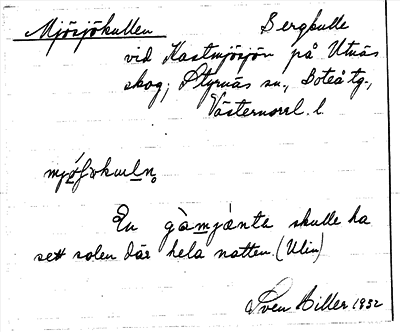 Mjösjökullen Bergkulle
vid Kastmjösjön på Utnäs
skog, Styrnäs sn., Boteå tg.,
Västernorrl. l.
En gå̀mjänta skulle ha
sett solen där hela natten. (Ulin)
Sven Hiller 1932